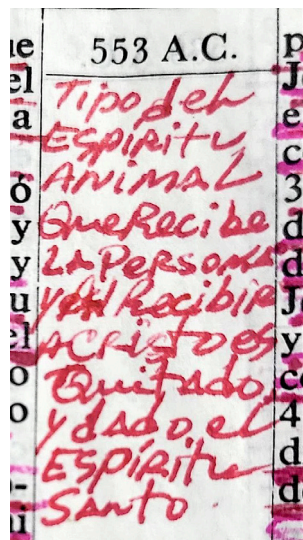 553 A.C.
Tipo del
ESPIRITU
ANIMAL
QUE Recibe
LA PERSONA
y Al Recibir
A CRISTO es
Quitado
y dado el
ESPÍRITU
SANTO.